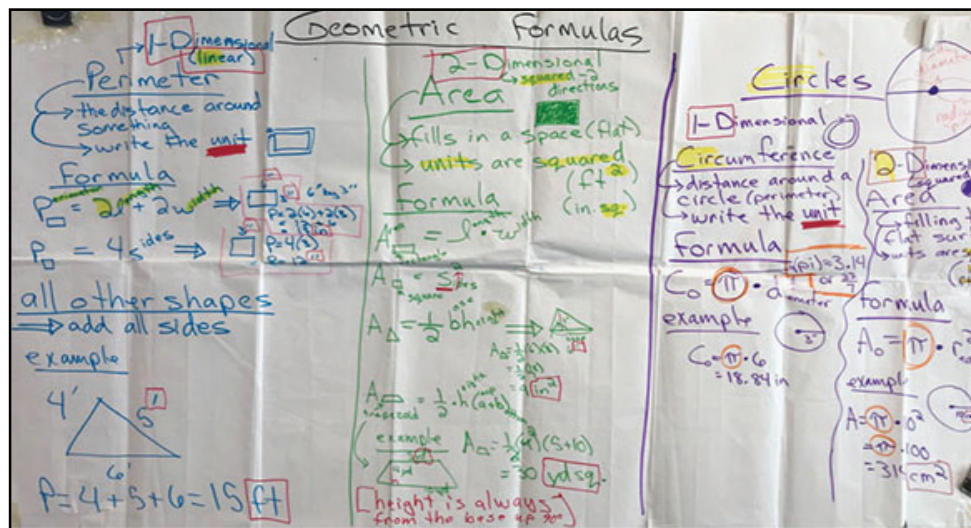 Geometric Formulas
1-Dimensional
(linear)
Perimeter
→ the distance around
something
→ write the unit
Formula
P = 2l + 2w ⇒
6" by 3"
P = 2(6) + 2(3)
P = 4 sides ⇒
P = 4(3)
P = 12"
all other shapes
⇒ add all sides
example
4'
5'
6'
P = 4 + 5 + 6 = 15 ft
2-Dimensional
squared - 2
directions
Area
→ fills in a space (flat)
→ units are squared
(ft²)
(in. sq)
Formula
A = length • width
A = s²
square
A = ½ bh ⇒
A = ½ h (a+b)
example
(5+10)
= 30 yd sq.
[height is always
from the base up 90°]
Circles
1-Dimensional
Circumference
→ distance around a
circle (perimeter)
→ write the unit
Formula
(pi) = 3.14
or 22/7
C = π • diameter
example
3"
C = π • 6
= 18.84 in
2-Dimens
squared
Area
→ filling
flat sur
Formula
A = π • r²
example
= π • 100
= 314 cm²